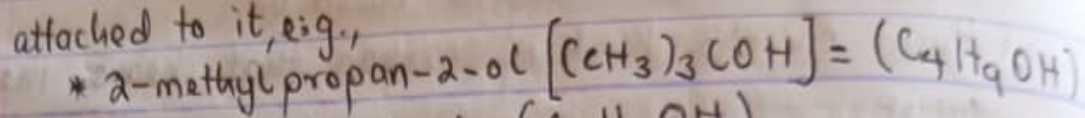 attached to it, e.g.,
* 2-methyl propan-2-ol [(CH3)3COH] = (C4H9OH)